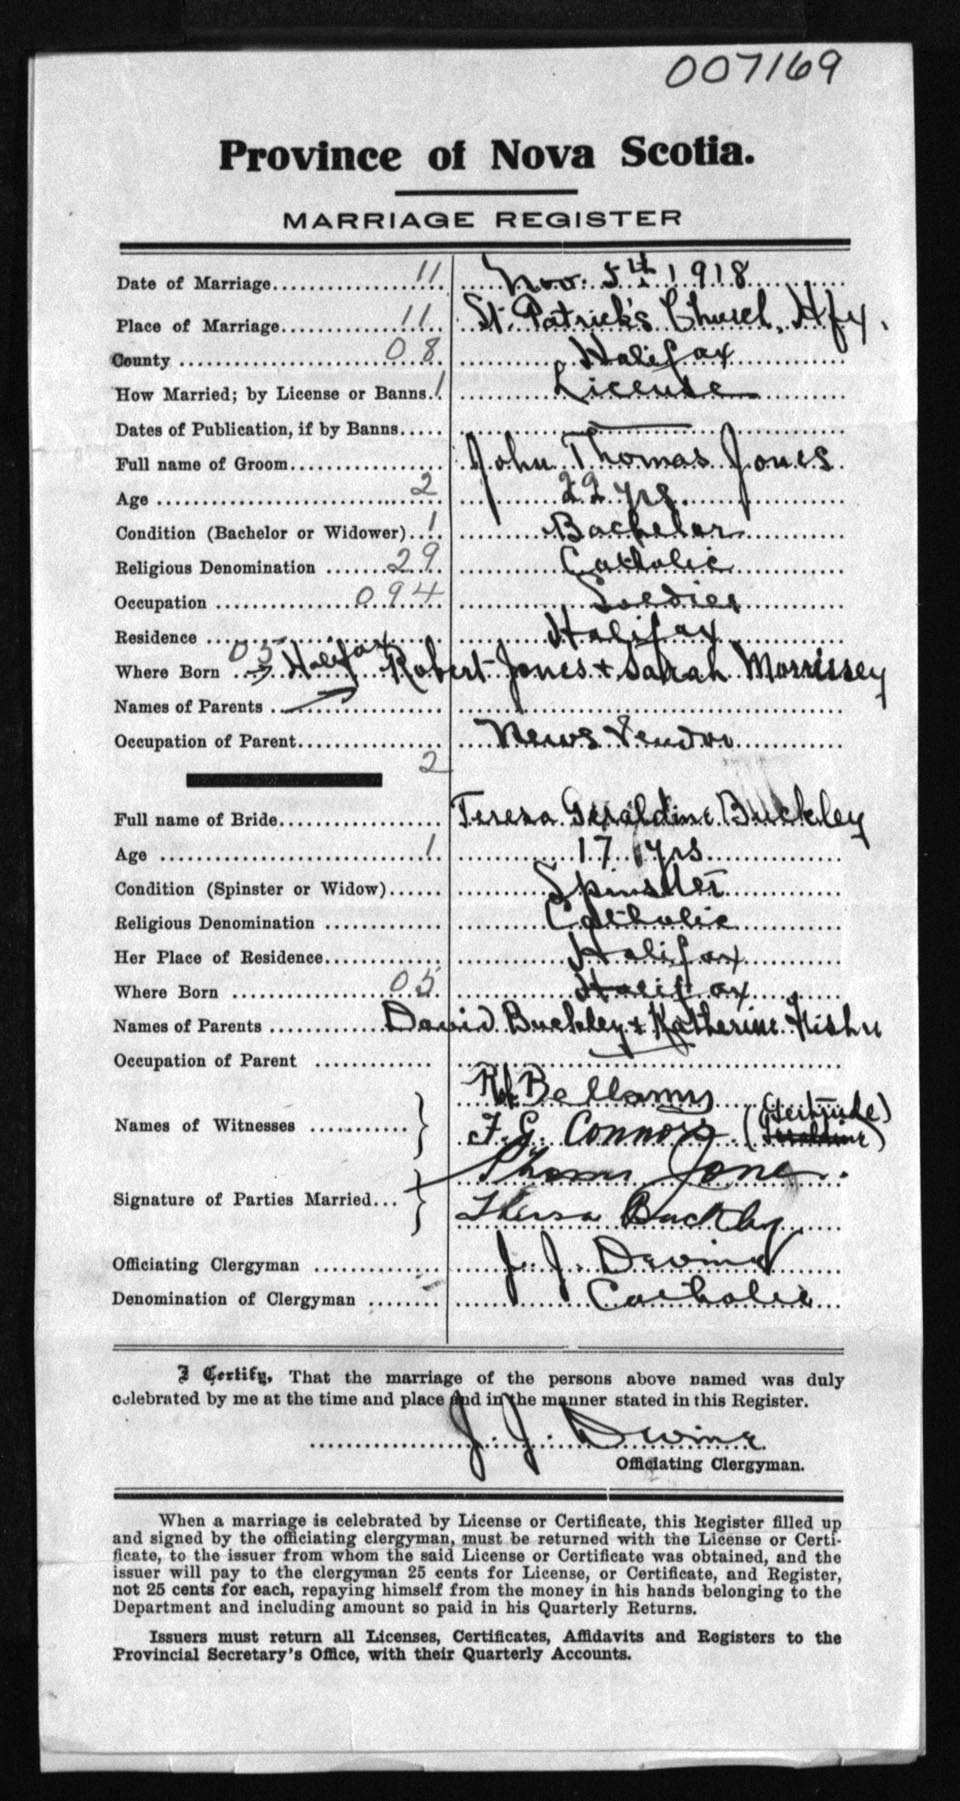 007169
Province of Nova Scotia.
MARRIAGE REGISTER
Date of Marriage 11 Nov. 5th 1918
Place of Marriage 11 St. Patrick's Church, Hfx.
County 08 Halifax
How Married; by License or Banns 1 License
Dates of Publication, if by Banns
Full name of Groom John Thomas Jones
Age 2 22 yrs.
Condition (Bachelor or Widower) 1 Bachelor
Religious Denomination 29 Catholic
Occupation 094 Soldier
Residence Halifax
Where Born 05 Halifax Robert Jones + Sarah Morrissey
Names of Parents
Occupation of Parent News Vendor
2
Full name of Bride Teresa Geraldine Buckley
Age 1 17 yrs
Condition (Spinster or Widow) Spinster
Religious Denomination Catholic
Her Place of Residence Halifax
Where Born 05 Halifax
Names of Parents David Buckley + Katherine Fisher
Occupation of Parent
Names of Witnesses Bellamy
F. G. Connors (Gertrude)
Signature of Parties Married Thomas Jones.
Theresa Buckley
Officiating Clergyman J. J. Devine
Denomination of Clergyman Catholic
I Certify, That the marriage of the persons above named was duly
celebrated by me at the time and place and in the manner stated in this Register.
J. J. Devine
Officiating Clergyman.
When a marriage is celebrated by License or Certificate, this Register filled up
and signed by the officiating clergyman, must be returned with the License or Certi-
ficate, to the issuer from whom the said License or Certificate was obtained, and the
issuer will pay to the clergyman 25 cents for License, or Certificate, and Register,
not 25 cents for each, repaying himself from the money in his hands belonging to the
Department and including amount so paid in his Quarterly Returns.
Issuers must return all Licenses, Certificates, Affidavits and Registers to the
Provincial Secretary's Office, with their Quarterly Accounts.